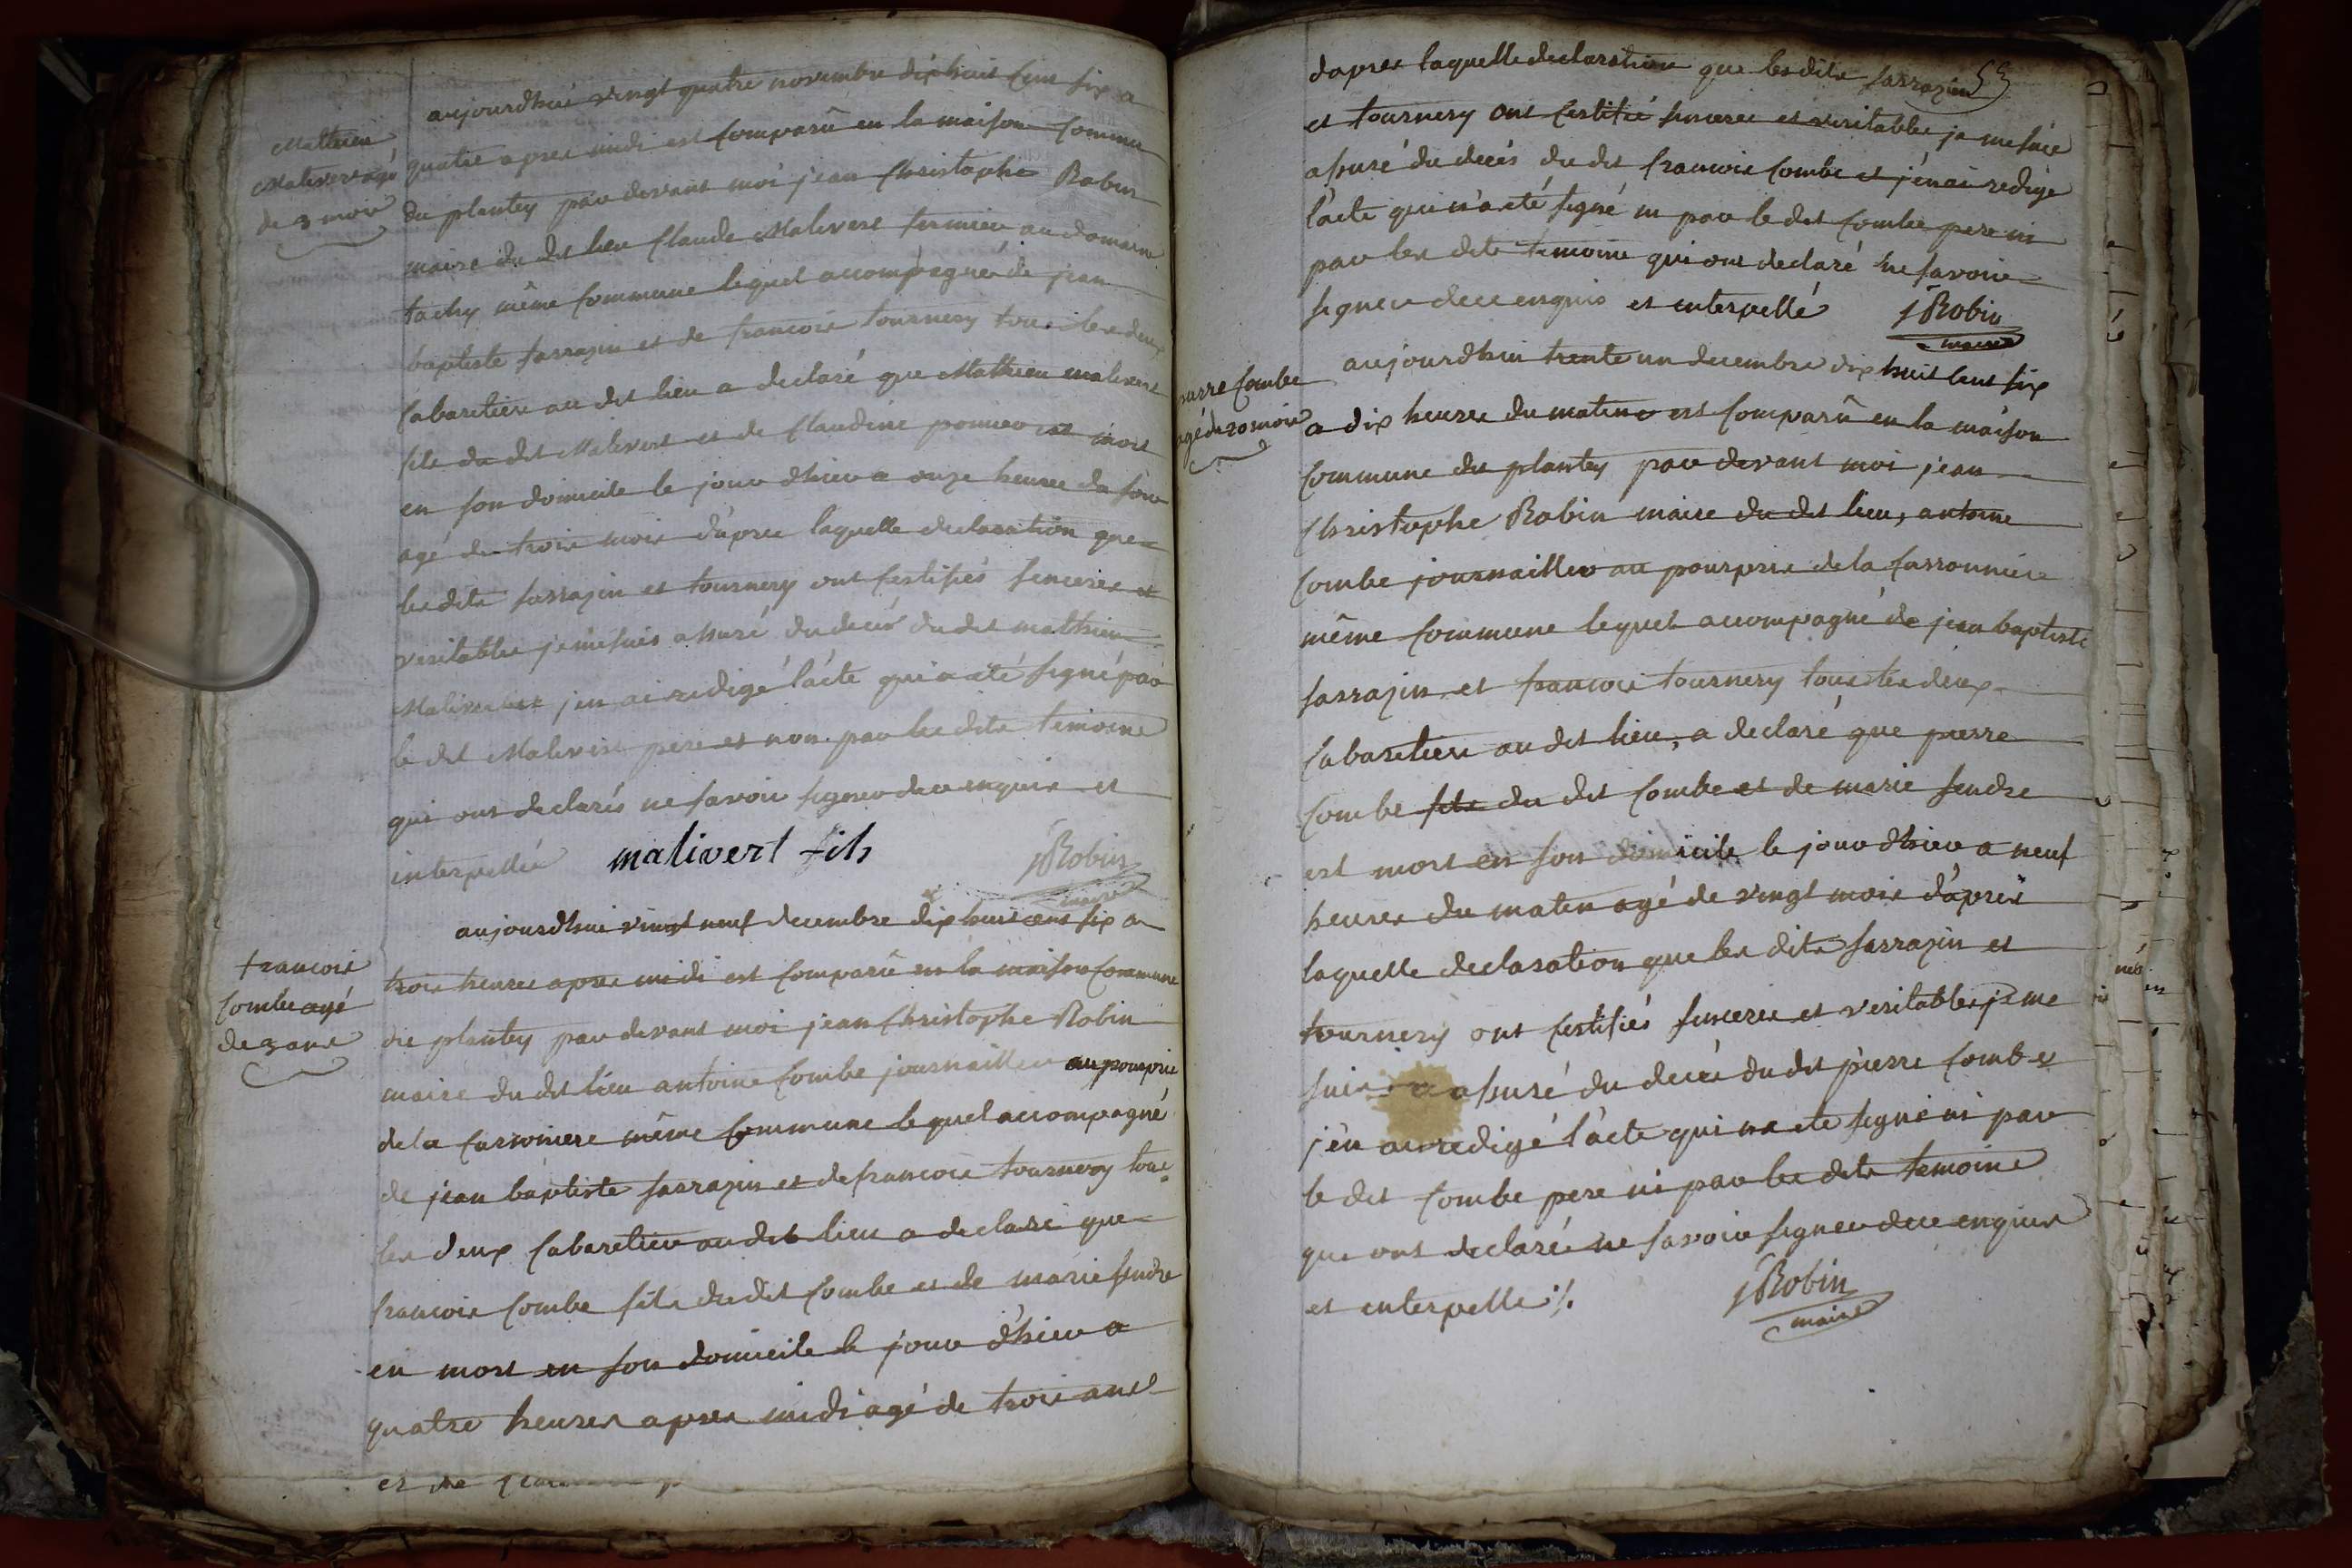 Mathieu
Malivert agé
de 3 mois
aujourdhui vingt quatre novembre dix huit cens six a
quatre apres midi est comparû en la maison commu
du plantey par devant moi jean christophe Robin
maire du dit lieu Claude Malivert fermier au domaine
tachy même commune lequel accompagné de jean
baptiste sarrazin et de francois tournery tous les deux
cabaretiers au dit lieu a declaré que Mathieu malivert
fils du dit Malivert et de Claudine ponier est mort
en son domicile le jour dhier a onze heures du soir
agé de trois mois d'apres laquelle declaration que
les dits sarrazin et tournery ont certifiés sinceres et
veritables je me suis assuré du decés du dit mathieu
Malivert j'en ai redigé l'acte qui a été signé par
le dit Malivert pere et non par les dits temoins
qui ont declarés ne savoir signer de ce enquis et
interpellés malivert fils jRobin
maire
francois
combe agé
de 3 ans
aujourdhui vingt neuf decembre dix huit cens six a
trois heures apres midi est comparû en la maison commune
du plantey par devant moi jean Christophe Robin
maire du dit lieu antoine combe journaillier au pourpris
de la carronniere même commune lequel accompagné
de jean baptiste sarrazin et de francois tournery tous
les deux cabaretiers au dit lieu a declaré que
francois combe fils du dit combe et de marie fendre
en mort en son domicile le jour d'hier a
quatre heures apres midi agé de trois ans
53
d'apres laquelle declaration que les dits sarrazin
et tournery ont certifié sinceres et veritables je me suis
assuré du decés du dit francois combe et j'en ai redigé
l'acte qui n'a eté signé ni par le dit combe pere ni
par les dits temoins qui ont declaré ne savoir
signer de ce enquis et interpellé jRobin
maire
pierre combe
agé de 20 mois
aujourdhui trente un decembre dix huit cens six
a dix heures du matin est comparû en la maison
commune du plantey par devant moi jean
Christophe Robin maire du dit lieu, antoine
combe journaillier au pourpris de la carronniere
même commune lequel accompagné de jean baptiste
sarrazin et francois tournery tous les deux
cabaretiers au dit lieu, a declaré que pierre
combe fils du dit combe et de marie fendre
est mort en son domicile le jour dhier a neuf
heures du matin agé de vingt mois d'après
laquelle declaration que les dits sarrazin et
tournery ont certifiés sinceres et veritables je me
suis assuré du decés du dit pierre combe
j'en ai redigé l'acte qui na eté signé ni par
le dit combe pere ni par les dits temoins
qui ont declarés ne savoir signer de ce enquis
et interpellé ·/. jRobin
maire